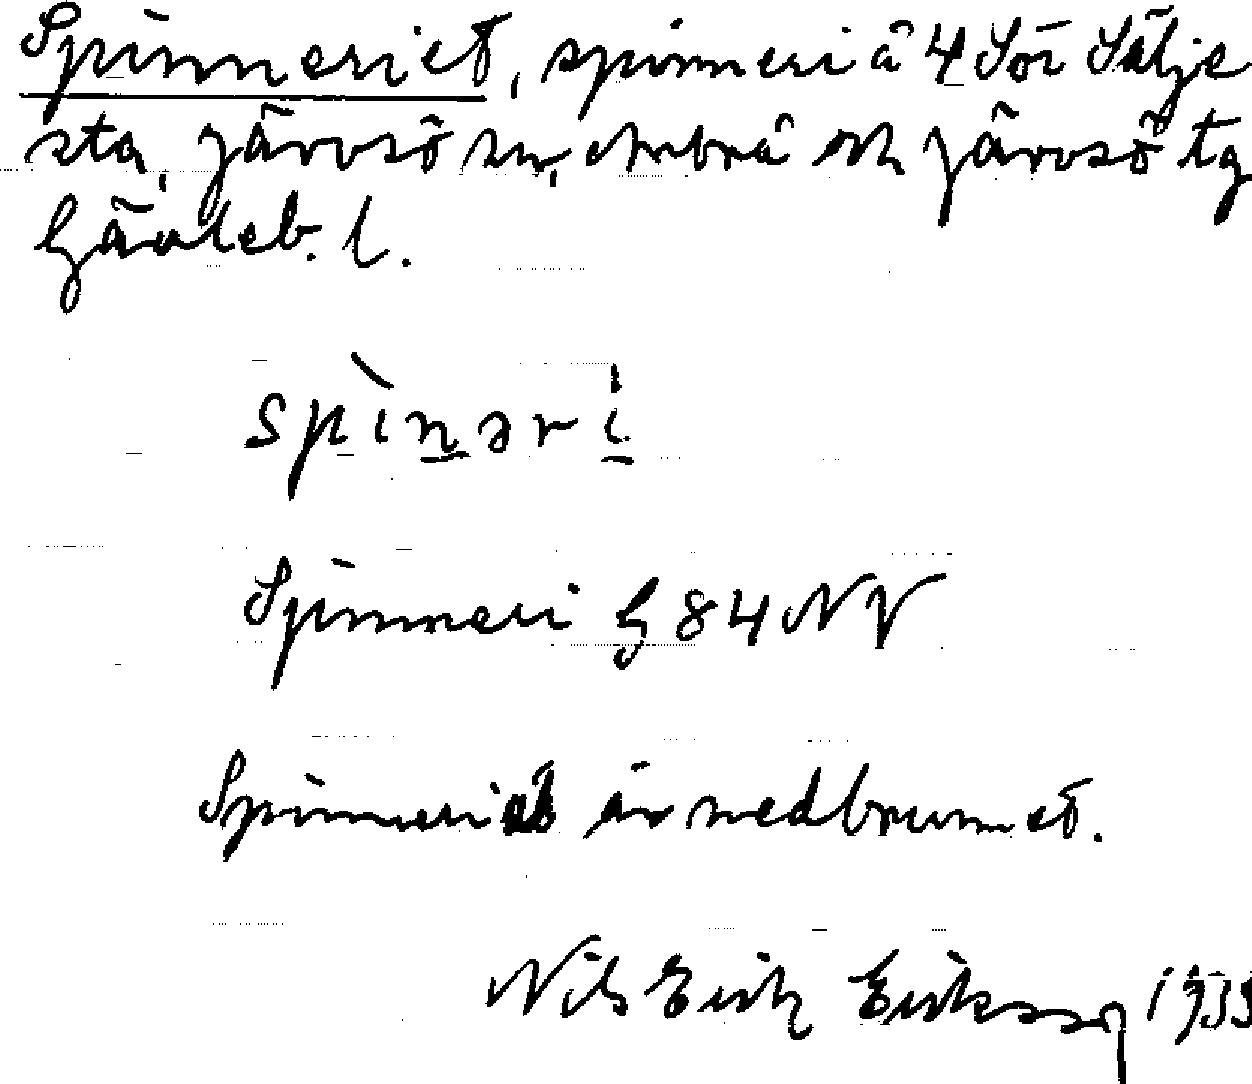 Spinneriet, spinneri å 4 Sör Sälje
sta, Järvsö sn, Arbrå och Järvsö tg
Gävleb. l.
spìnəri
Spinneri G 84 NV
Spinneriet är nedbrunnet.
Nils Erik Eriksson 1933